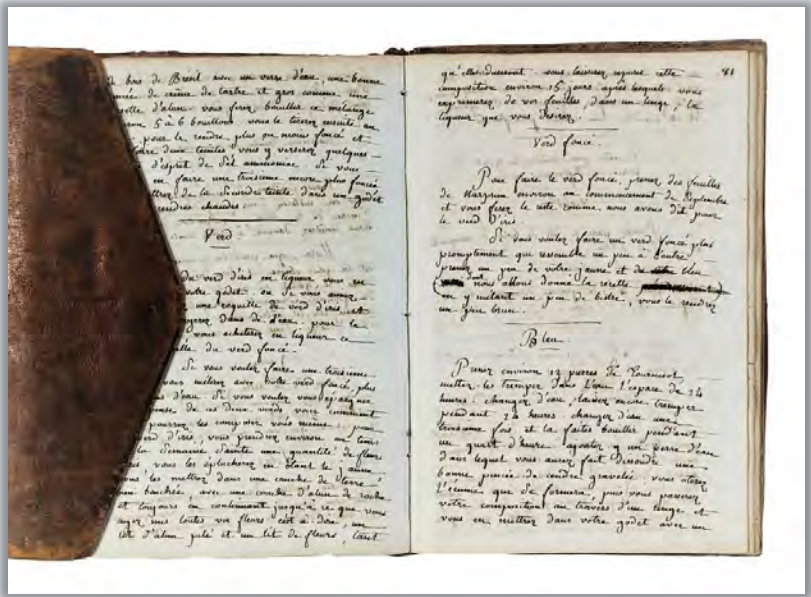 de bois de Brésil avec un verre d'eau, une bonne
de crème de tartre et gros comme une
d'alun. vous ferez bouillir ce mélange
5 à 6 bouillons vous le tirerez ensuite au
pour le rendre plus ou moins foncé et
faire deux teintes vous y verserez quelques
d'esprit de Sel ammoniac Si vous
en faire une troisieme encore plus foncée
de la Seconde teinte dans un godet
cendres chaudes.
Verd
Du verd d'iris en liqueur vous en
votre godet. ou si vous avez
une coquille de verd d'iris et
dans de l'eau. pour le
vous acheterez en liqueur ce
du verd foncé.
Si vous voulez faire une troisieme
vous mêlerez avec votre verd foncé, plus
d'eau. Si vous voulez vous épargner
de ces deux verds, voici comment
pourrez les composer vous même: pour
verd d'iris, vous prendrez environ au tems
la demaine Sainte une quantité de fleurs
vous les éplucherez en ôtant le jaune
les mettrez dans une cruche de terre
bouchée avec une couche d'alun de roche
et toujours en continuant jusqu'à ce que vous
ayez mis toutes vos fleurs c'est à dire, un
lit d'alun pilé et un lit de fleurs, tant
81
qu'elles dureront. vous laisserez reposer cette
composition environ 15 jours après lesquels vous
exprimerez de vos feuilles, dans un linge, la
liqueur que vous désirez.
Verd foncé.
Pour faire le verd foncé, prenez des feuilles
de environ au commencement de Septembre
et vous ferez le reste comme nous avons dit pour
le verd d'iris.
Si vous voulez faire un verd foncé plus
promptement que ressemble un peu à l'autre
prenez un peu de votre jaune et du bleu
(dont nous allons donné la recette)
en y mêlant un peu de bistre, vous le rendrez
un peu brun.
Bleu
Prenez environ 12 pierres de Tournesol
mettez-les tremper dans l'eau l'espace de 24
heures. changez d'eau, laissez encore tremper
pendant 24 heures changez d'eau une
troisieme fois et la faites bouillir pendant
un quart d'heure. ajoutez y un verre d'eau
dans lequel vous aurez fait dissoudre une
bonne pincée de cendre gravelée. vous oterez
l'écume que se formera, puis vous passerez
votre composition au travers d'un linge et
vous en mettrez dans votre godet avec un